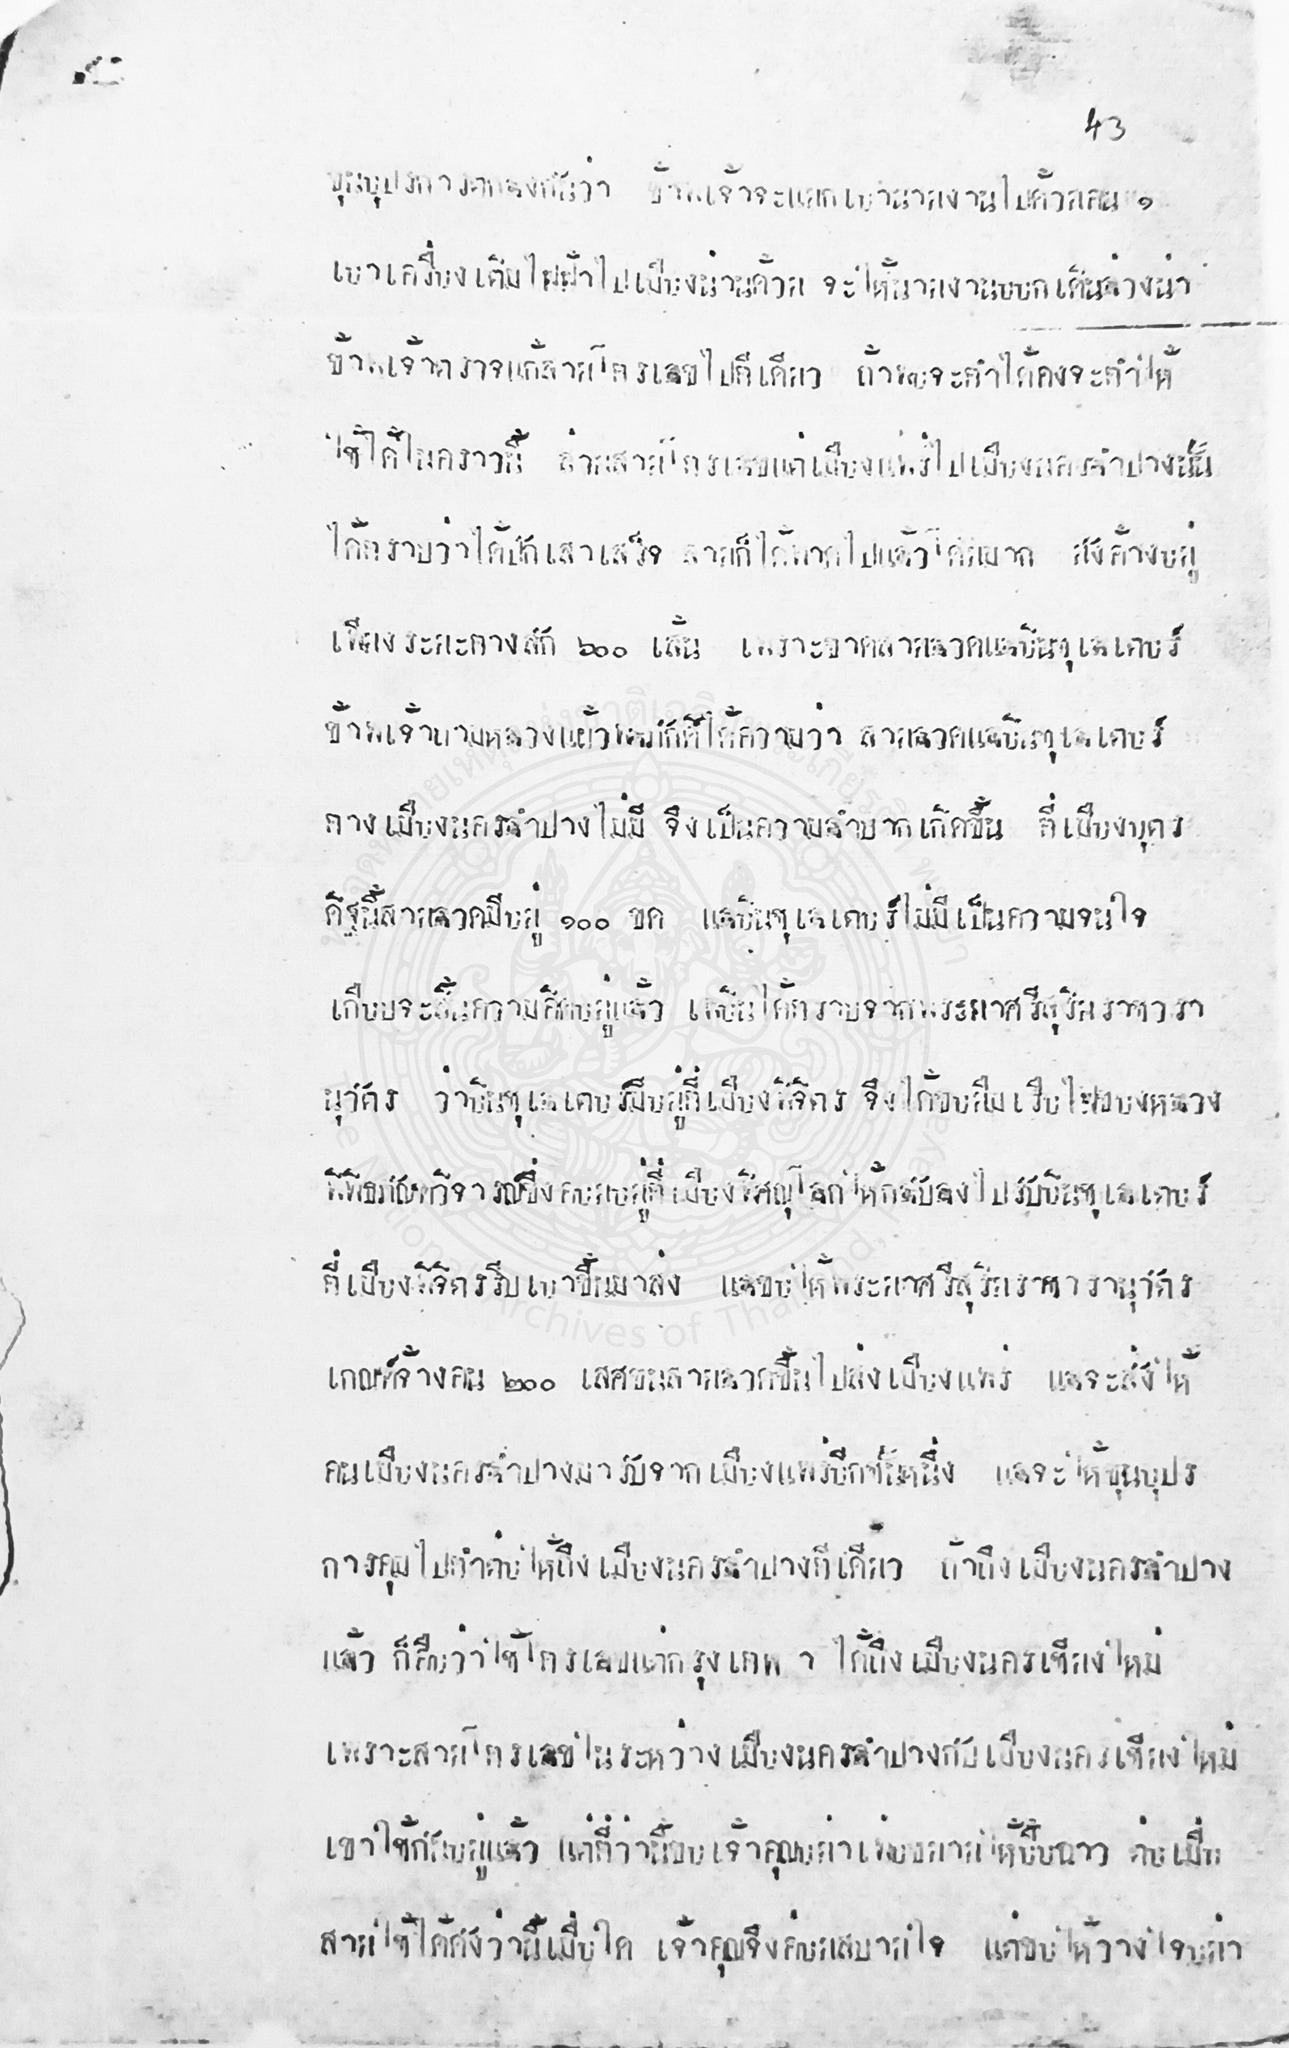 43
ขุนบุปรการตกลงกันว่า ข้าพเจ้าจะแยกเอานายงานไปด้วยคน ๑
เอาเครื่องเดิมไฟฟ้าไปเมืองน่านด้วย จะให้นายงานออกเดินล่วงน่า
ข้าพเจ้าตรวจแก้สายโทรเลขไปทีเดียว ถ้าพอจะทำได้คงจะทำให้
ใช้ได้ในคราวนี้ ส่วนสายโทรเลขแต่เมืองแพร่ไปเมืองนครลำปางนั้น
ได้ทราบว่าได้ปักเสาเสร็จ สายก็ได้พาดไปแล้วโดยมาก ยังค้างอยู่
เพียงระยะทางสัก ๖๐๐ เส้น เพราะขาดสายลวดแลอินซุเลเตอร์
ข้าพเจ้าถามหลวงแผ้วพนภักดีได้ความว่า สายลวดแลอินซุเลเตอร์
ทางเมืองนครลำปางไม่มี จึงเป็นความลำบากเกิดขึ้น ที่เมืองอุตร
ดิฐนี้สายลวดมีอยู่ ๑๐๐ ขด แลอินซุเลเตอร์ไม่มีเป็นความจนใจ
เกือบจะสิ้นความคิดอยู่แล้ว เผอิญได้ทราบจากพระยาศรีสุริยราชวรา
นุวัตร ว่าอินซุเลเตอร์มีอยู่ที่เมืองพิจิตร จึงได้ขอยืมเรือไฟของหลวง
พิพิธภัณฑวิจารณ์ซึ่งคอยอยู่ที่เมืองพิศณุโลกให้กลับลงไปรับอินซุเลเตอร์
ที่เมืองพิจิตรรีบเอาขึ้นมาส่ง แลขอให้พระยาศรีสุริยราชวรานุวัตร
เกณฑ์จ้างคน ๒๐๐ เสศขนสายลวดขึ้นไปส่งเมืองแพร่ แลจะสั่งให้
คนเมืองนครลำปางมารับจากเมืองแพร่อีกชั้นหนึ่ง แลจะให้ขุนบุปร
การคุมไปทำต่อให้ถึงเมืองนครลำปางทีเดียว ถ้าถึงเมืองนครลำปาง
แล้ว ก็คือว่าใช้โทรเลขแต่กรุงเทพ ฯ ได้ถึงเมืองนครเชียงใหม่
เพราะสายโทรเลขในระหว่างเมืองนครลำปางกับเมืองนครเชียงใหม่
เขาใช้กันอยู่แล้ว แต่ที่ว่านี้ขอเจ้าคุณอย่าเพ่อขยายให้อื้อฉาว ต่อเมื่อ
สายใช้ได้ดังว่านี้เมื่อใด เจ้าคุณจึงค่อยสบายใจ แต่ขอให้วางใจอย่า